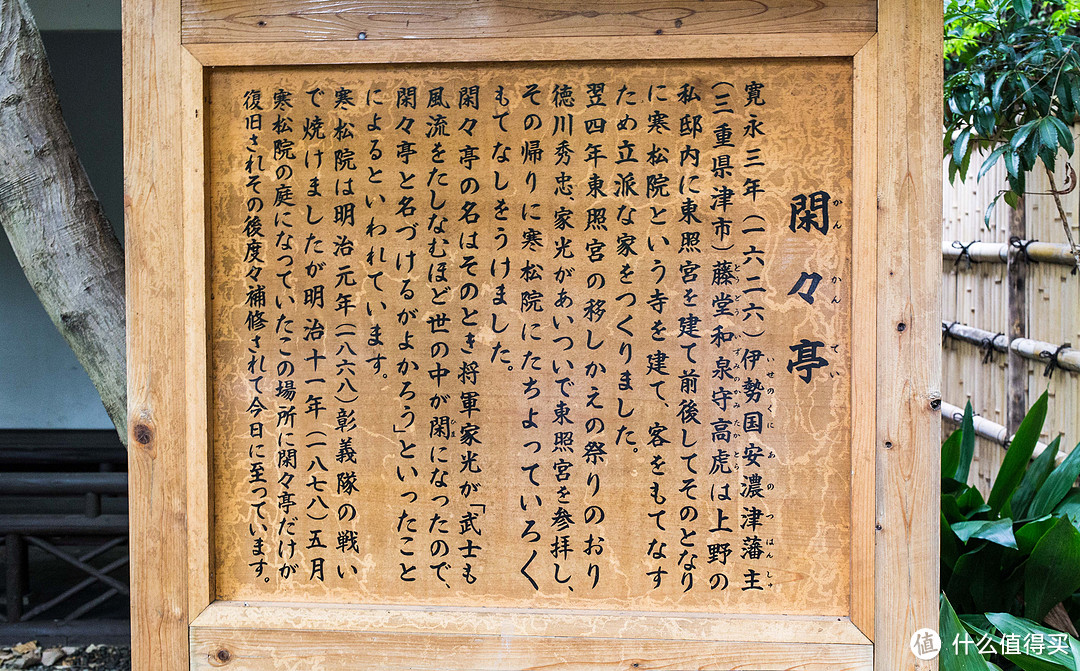 閑々亭
かんかんてい
寛永三年(一六二六)伊勢国安濃津藩主
いせのくにあのつはんしゅ
(三重県津市)藤堂和泉守高虎は上野の
とうどういずみのかみたかとら
私邸内に東照宮を建て前後してそのとなり
に寒松院という寺を建て、客をもてなす
ため立派な家をつくりました。
翌四年東照宮の移しかえの祭りのおり
徳川秀忠、家光があいついで東照宮を参拝し、
その帰りに寒松院にたちよっていろく
もてなしをうけました。
閑々亭の名はそのとき将軍家光が「武士も
風流をたしなむほど世の中が閑になったので、
ひま
閑々亭と名づけるがよかろう」といったこと
によるといわれています。
寒松院は明治元年(一八六八)彰義隊の戦い
で焼けましたが明治十一年(一八七八)五月
寒松院の庭になっていたこの場所に閑々亭だけが
復旧されその後度々補修されて今日に至っています。
值 什么值得买